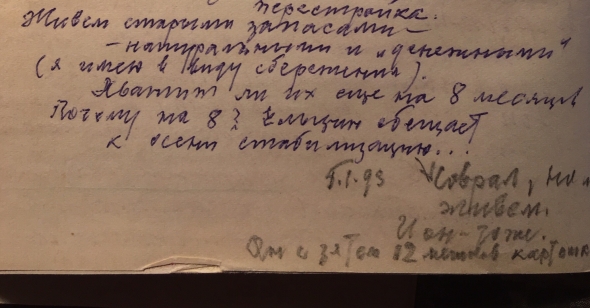 перестройка.
Живем старыми запасами —
— натуральными и „денежными“
(я имею в виду сбережения).
Хватит ли их еще на 8 месяцев
Почему на 8? Ельцин обещает
к осени стабилизацию...
1.93 Соврал, но
живем.
И он – тоже.
Он с зятем 12 мешков картошк